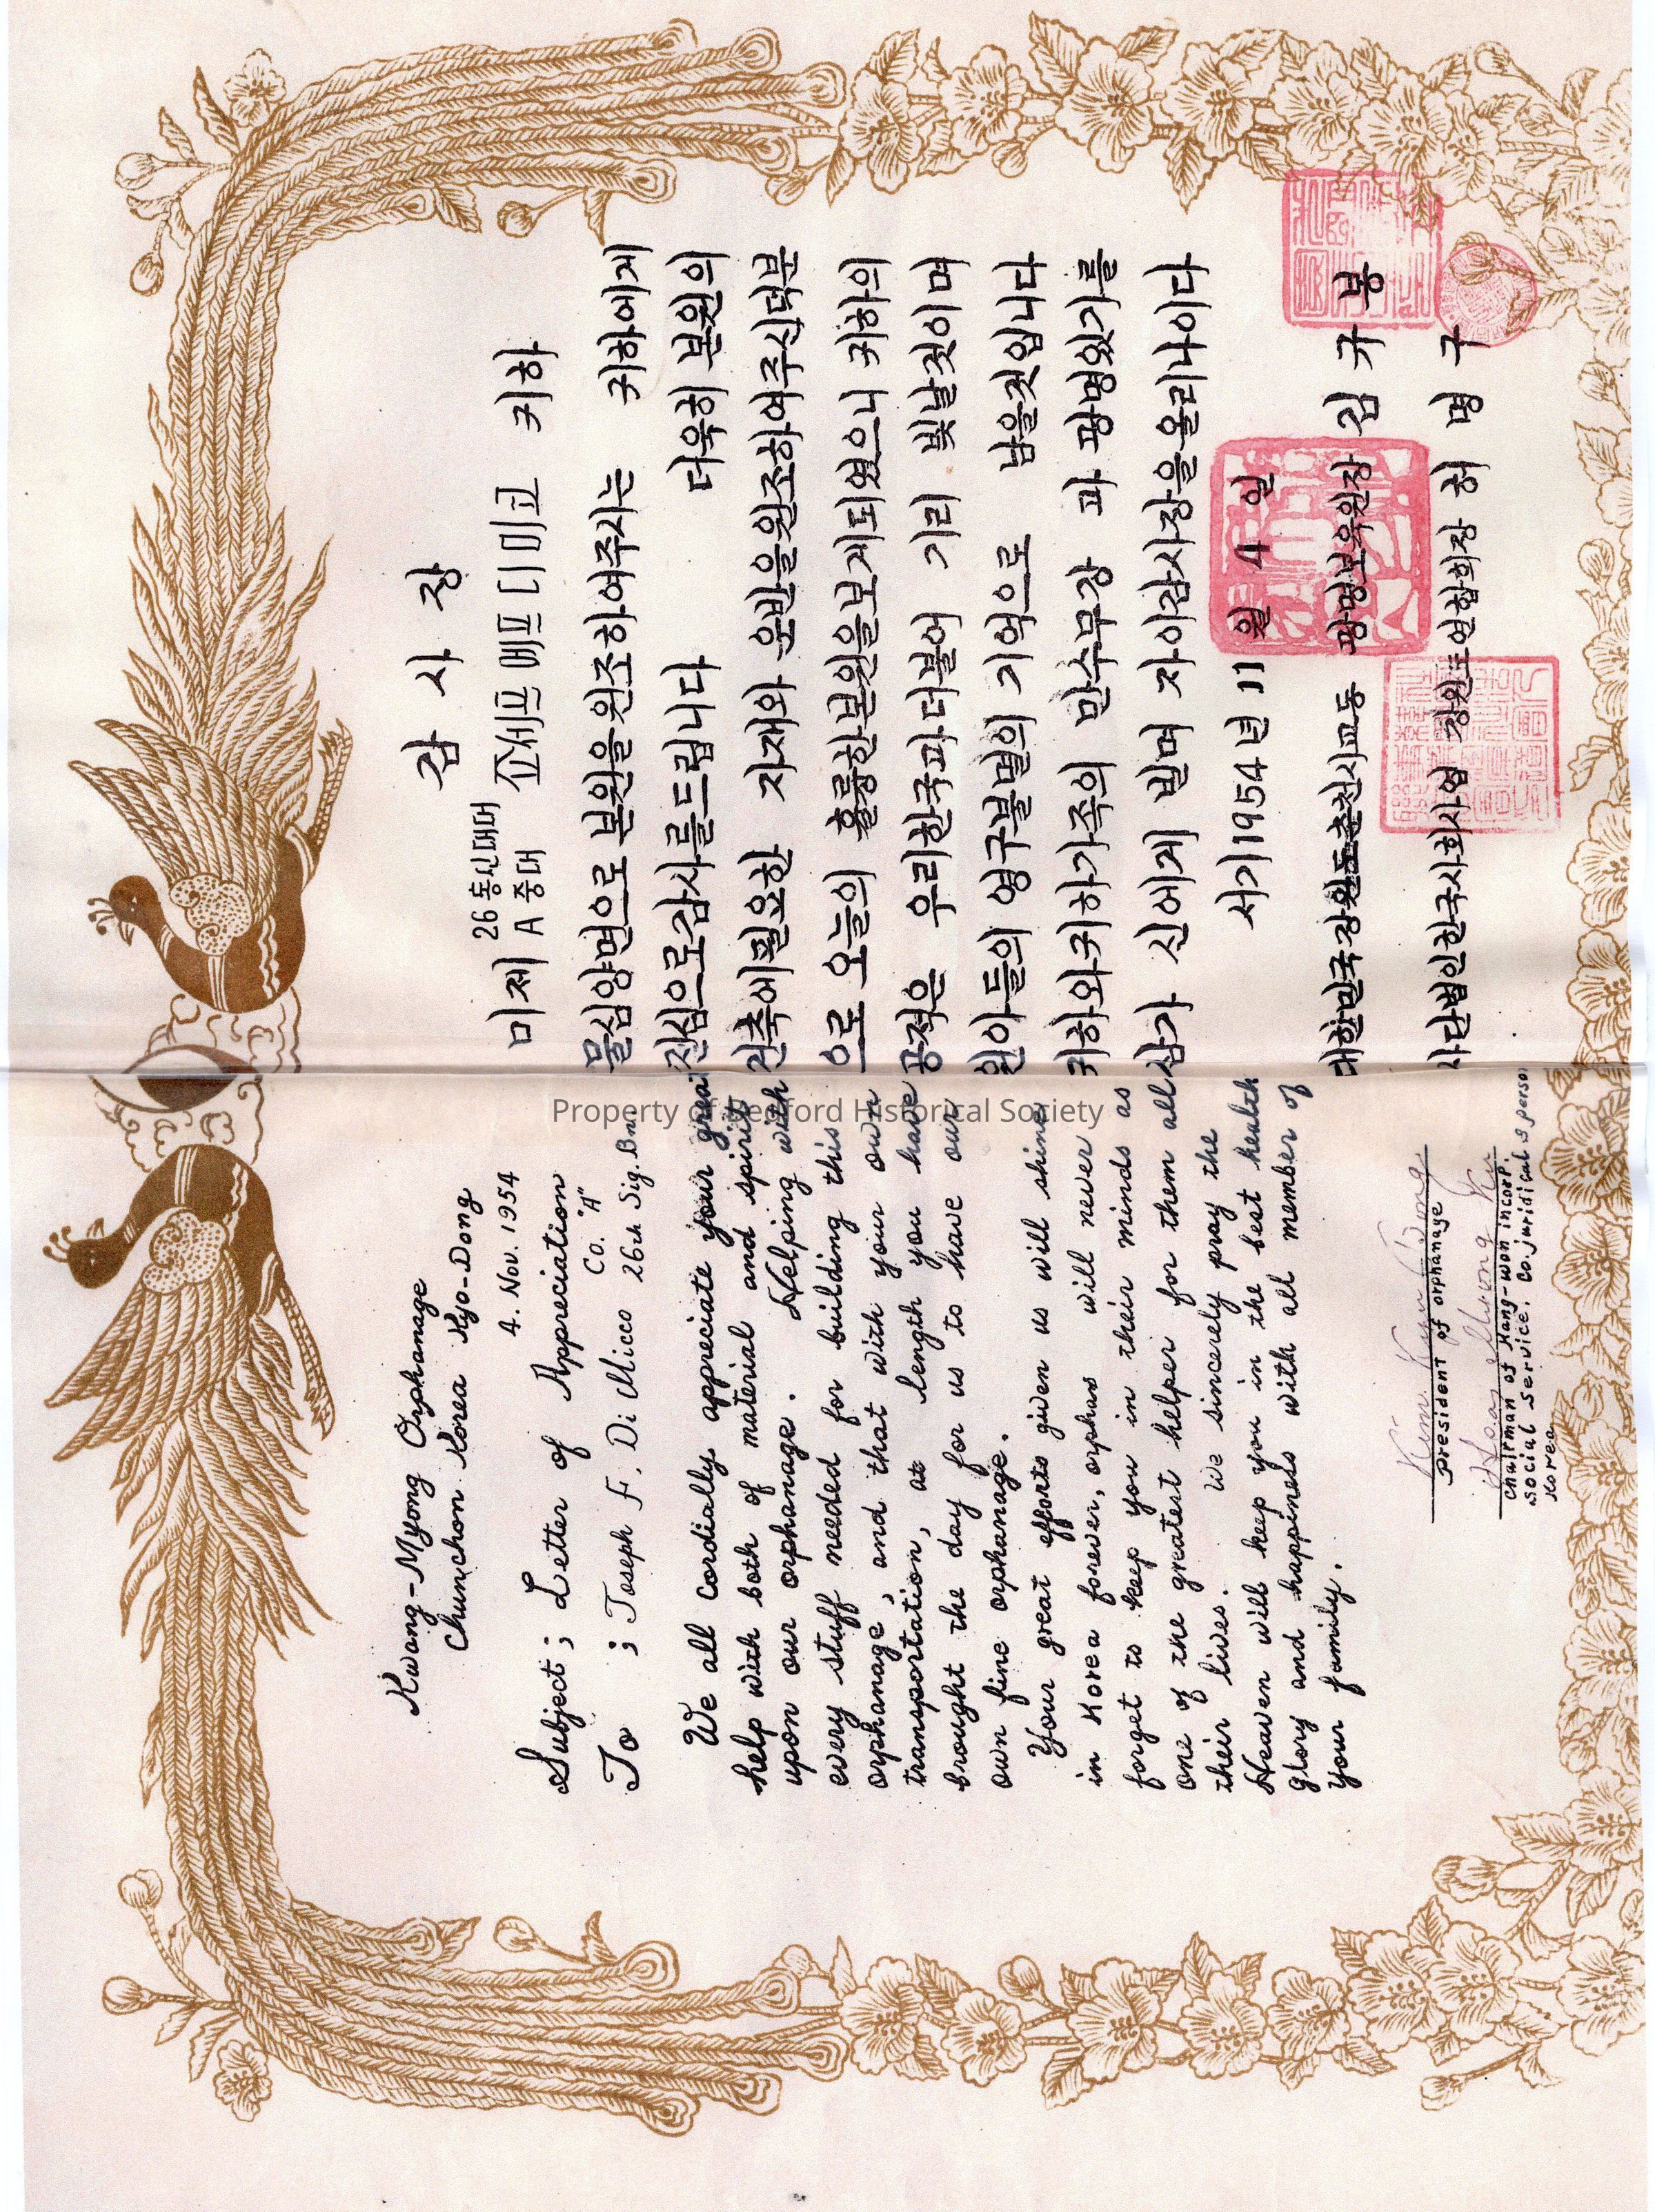 Kwang-Myong Orphanage
Chunchon Korea Kyo-Dong
4. Nov. 1954
Subject ; Letter of Appreciation
Co. "A"
To ; Joseph F. Di Micco 26th Sig. Bn.
We all cordially appreciate your great
help with both of material and spirit
upon our orphanage. Helping with
every stuff needed for building this
orphanage, and that with your own
transportation, at length you have
brought the day for us to have our
own fine orphanage.
Your great efforts given us will shine
in Korea forever, orphan will never
forget to keep you in their minds as
one of the greatest helper for them all
their lives. We sincerely pray the
Heaven will keep you in the best health
glory and happiness with all member of
your family.
Kim Kyu Bong
president of orphanage
Hoa Myong Ku
Chairman of Kang-won incorp.
social service. Co. juridical person
Korea
감 사 장
26 통신대대
미제 A 중대 쬬세프 에프 디미고 귀하
물심양면으로 본원을 원조하여주시는 귀하에게
진심으로감사를드립니다 더욱히 본원의
건축에필요한 자재와 운반을원조하여주신덕분
으로 오늘의 훌륭한본원을보게되였으니 귀하의
공적은 우리한국과더불어 기리 빛날것이며
원아들의 영구불멸의 기억으로 남을것입니다
귀하와귀하가족의 만수무강 과 광명있기를
삼가 신에게 빌며 자이감사장을올리나이다
서기1954년 11월 4일
대한민국강원도춘천시교동 광명보육원장 김 규 봉
사단법인한국사회사업 강원도연합회장 허 명 구
Property of Bedford Historical Society